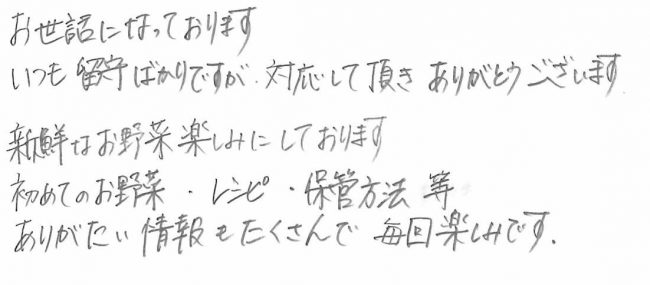 お世話になっております
いつも留守ばかりですが、対応して頂きありがとうございます
新鮮なお野菜楽しみにしております
初めてのお野菜・レシピ・保管方法等
ありがたい情報もたくさんで毎回楽しみです.